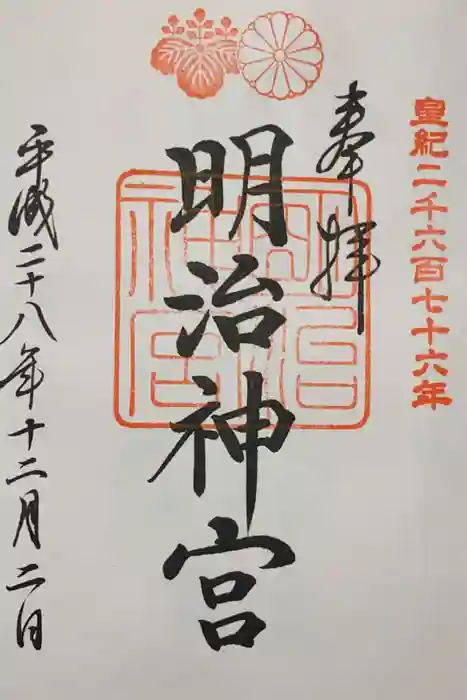 皇紀二千六百七十六年
奉拝
明治神宮
明治
神宮
平成二十八年十二月二日